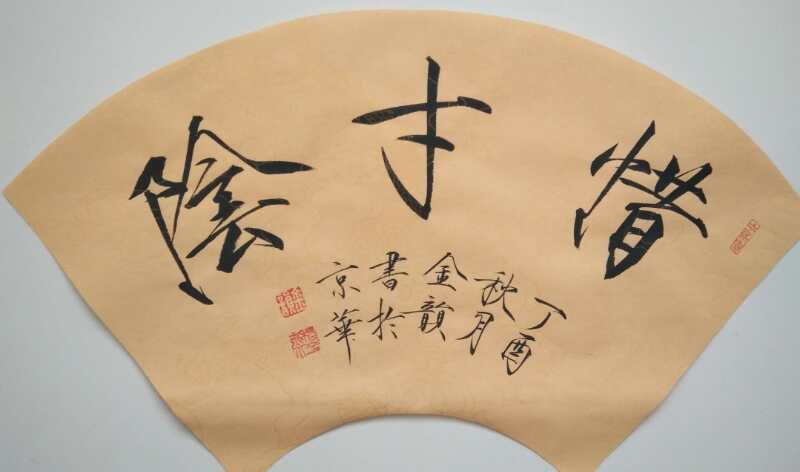 惜寸陰
丁酉
秋月
金韻
書於
京華